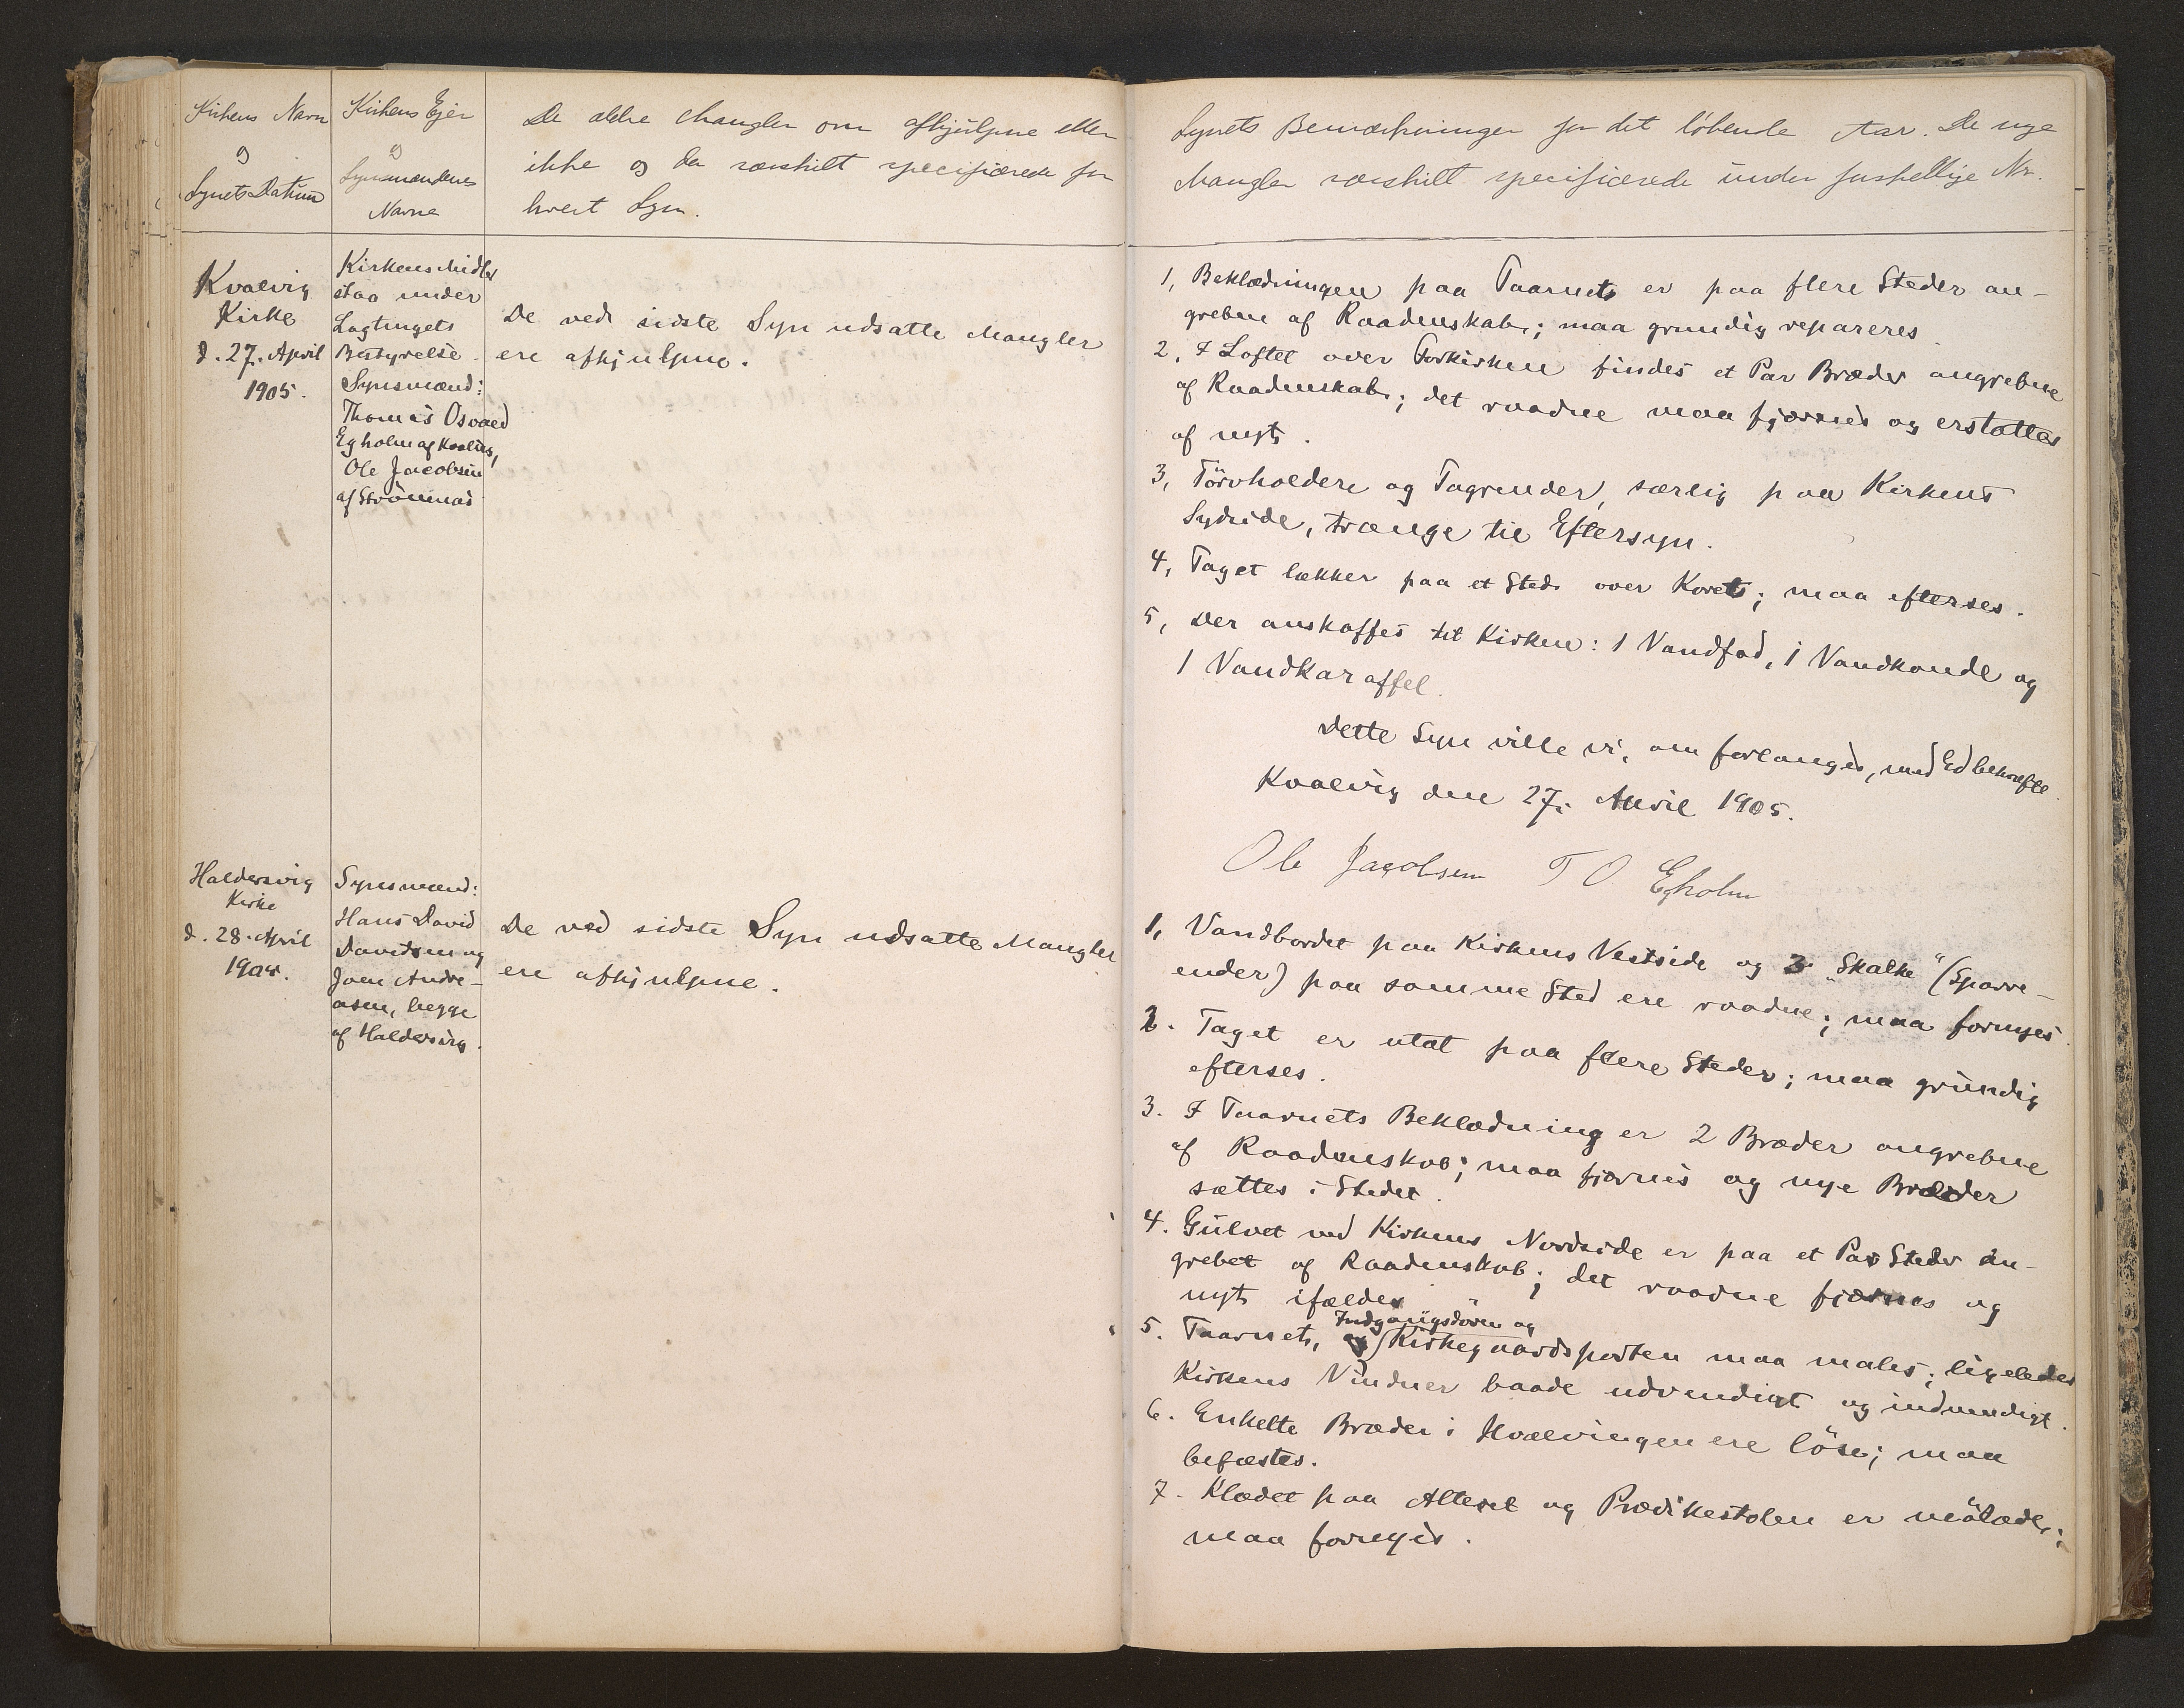 Kirkens Navn
og
Synets Datum
Kirkens Ejer
og
Synsmændenes
Navne
De ældre Mangler om afhjulpne eller
ikke og da særskilt specificerede for
hvert Syn.
Kvalvig
Kirke
d. 27. April
1905.
Kirkens Midler
staa under
Lagtingets
Bestyrelse.
Synsmænd:
Thomas Osvald
Egholm af Kvalvig,
Ole Jacobsen
af Strömnæs
De ved sidste Syn udsatte Mangler
ere afhjulpne.
Haldersvig
Kirke
d. 28. April
1905.
Synsmænd:
Hans David
Davidsen og
Joen Andre-
asen, begge
af Haldersvig.
De ved sidste Syn udsatte Mangler
ere afhjulpne.
Synets Bemærkninger for det löbende Aar. De nye
Mangler særskilt specificerede under forskellige Nr.
1, Beklædningen paa Taarnet er paa flere Steder an-
grebne af Raadenskab; maa grundig repareres.
2, I Loftet over Forkirken findes et Par Bræder angrebne
af Raadenskab; det raadne maa fjærnes og erstattes
af nyt.
3, Törvholdere og Tagrender, særlig paa Kirkens
Sydside, trænge til Eftersyn.
4, Taget lækker paa et Sted over Koret; maa efterses.
5, Der anskaffes til Kirken: 1 Vandfad, 1 Vandkande og
1 Vandkaraffel.
Dette Syn ville vi, om forlanges, med Ed bekræfte.
Kvalvig den 27. April 1905.
Ole Jacobsen T O Egholm
1, Vandbordet paa Kirkens Vestside og 3 "Skalke" (Sparre-
ender) paa samme Sted ere raadne; maa fornyes.
2. Taget er utæt paa flere Steder; maa grundig
efterses.
3. I Taarnets Beklædning er 2 Bræder angrebne
af Raadenskab; maa fjærnes og nye Bræder
sættes i Stedet.
4. Gulvet ved Kirkens Nordside er paa et Par Steder an-
grebet af Raadenskab; det raadne fjærnes og
nyt ifældes
Indgangsdören og
5. Taarnet, og Kirkegaardsporten maa males; ligeledes
Kirkens Vinduer baade udvendigt og indvendigt.
6. Enkelte Bræder i Hvælvingen ere löse; maa
befæstes.
7. Klædet paa Alteret og Prædikestolen er mölædt;
maa fornyes.